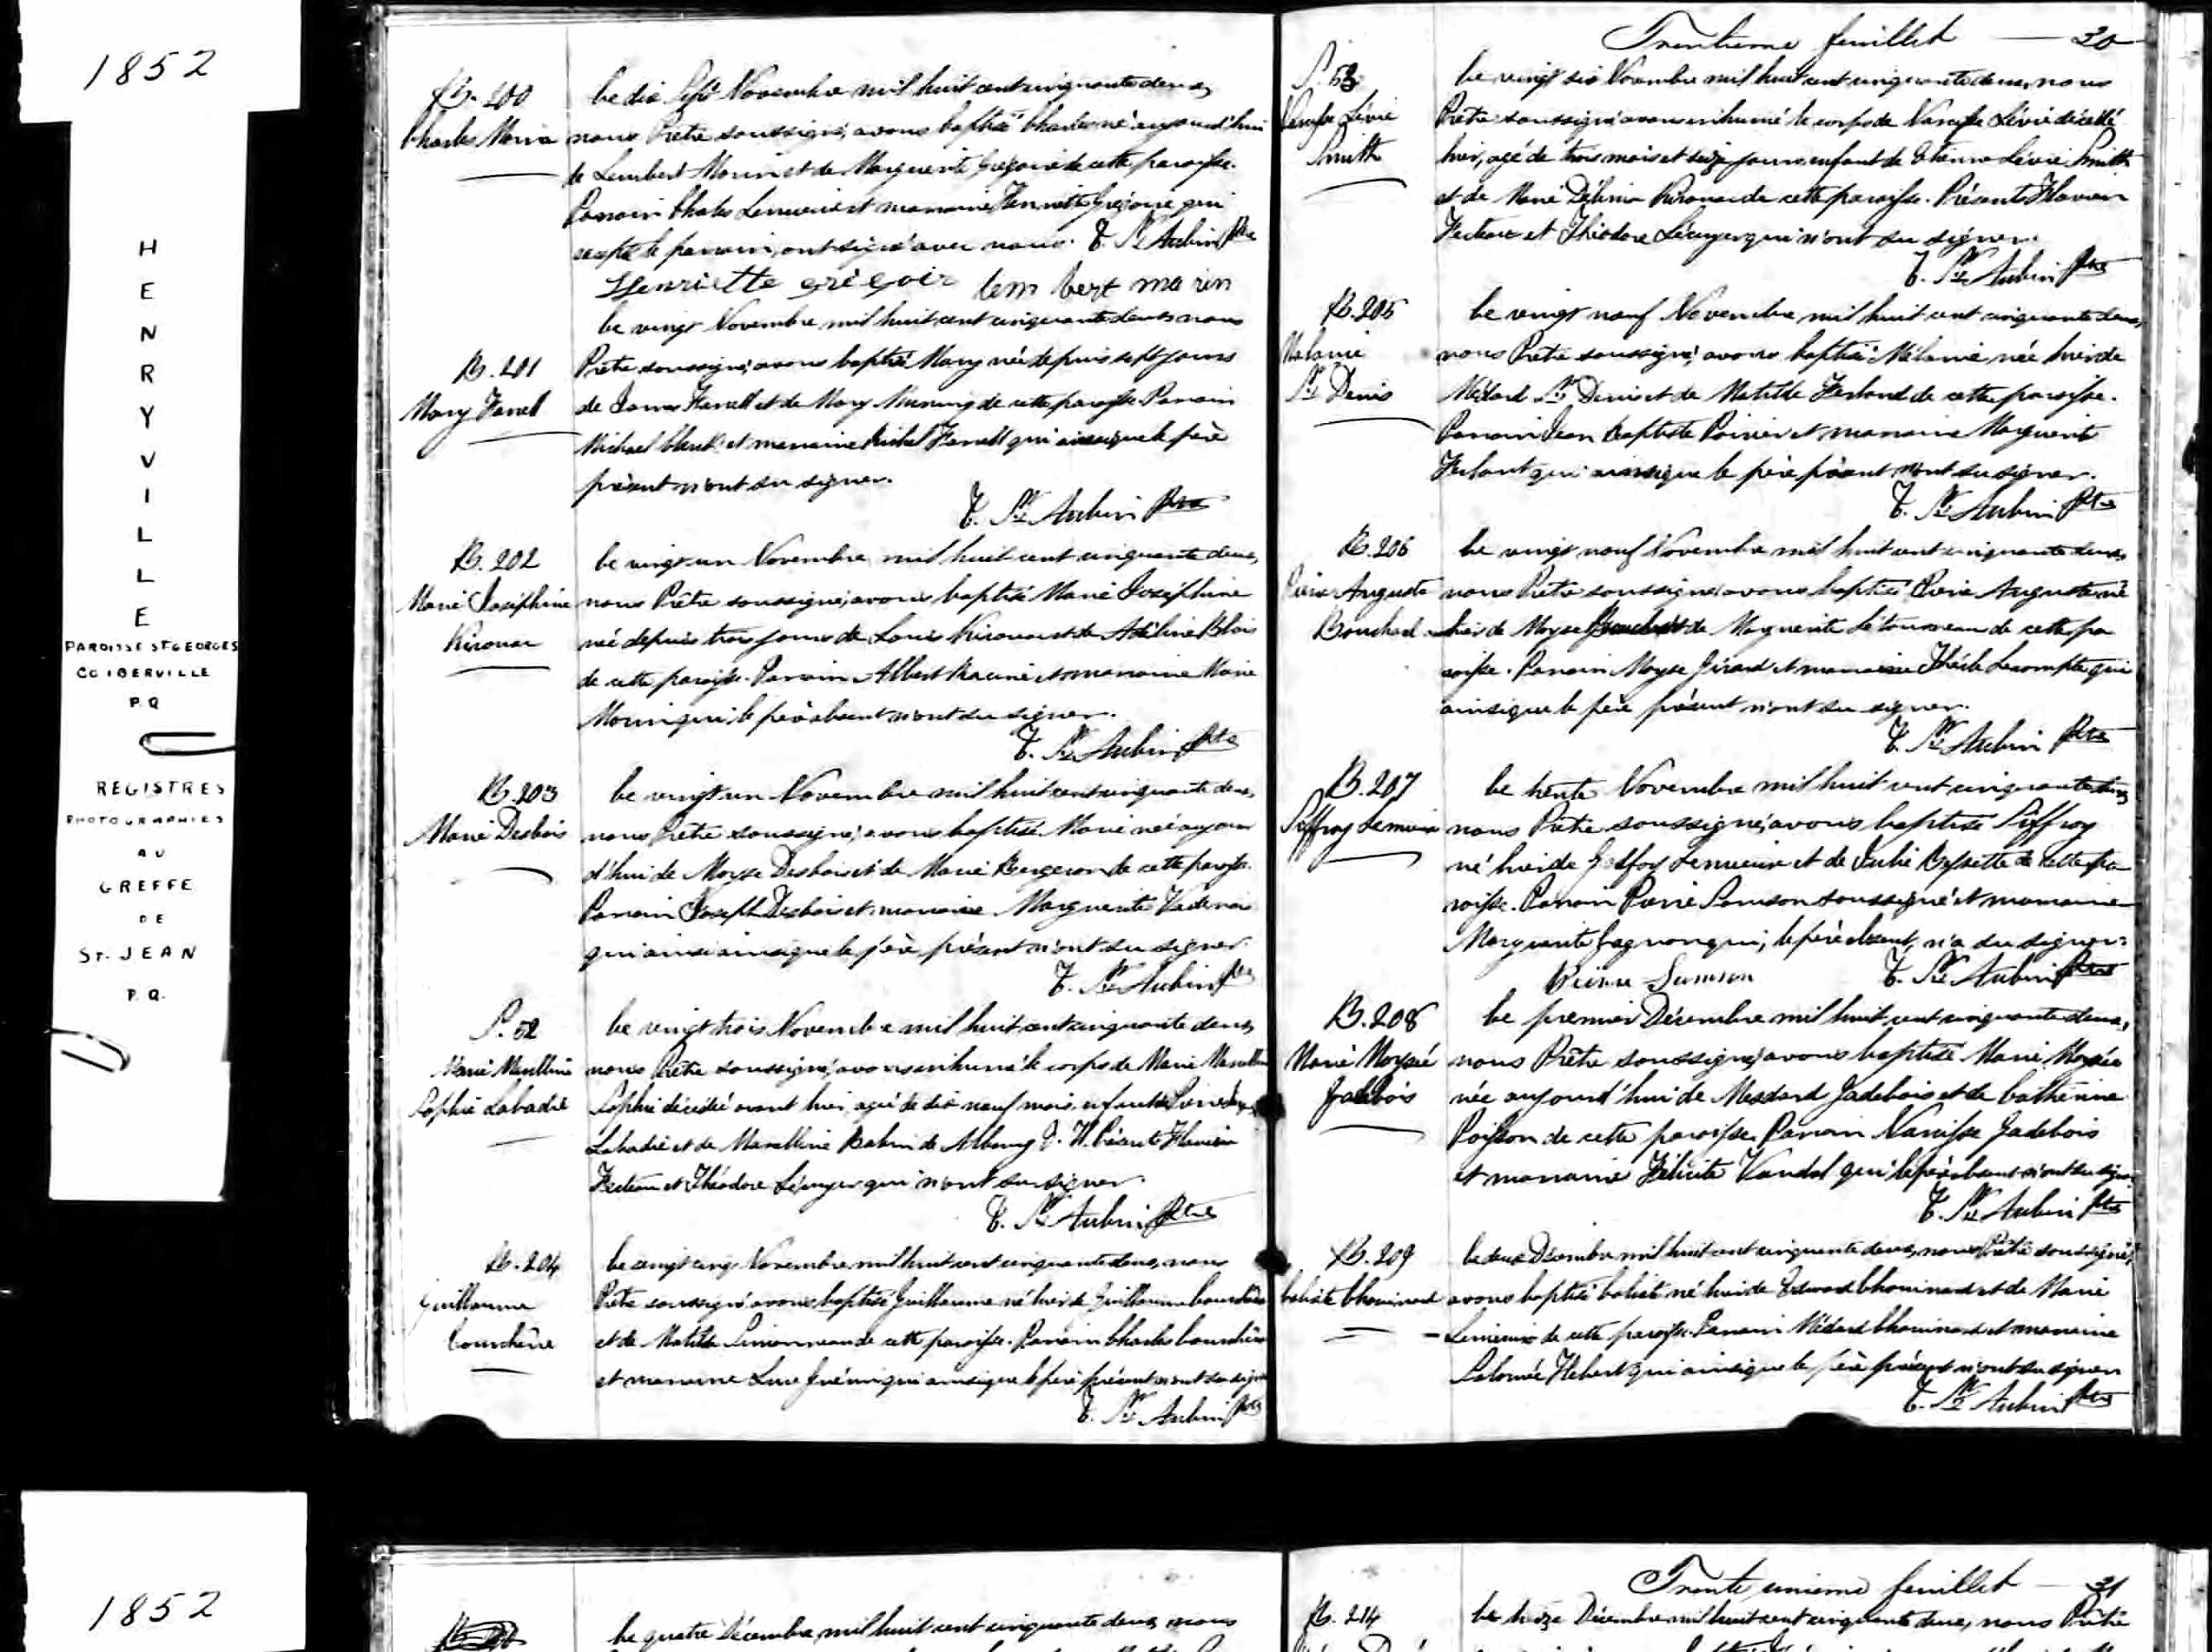 1852
HENRYVILLE
PAROISSE ST GEORGES
CO IBERVILLE
P.Q
REGISTRES
PHOTOGRAPHIES
AU
GREFFE
DE
ST. JEAN
P.Q.
B. 200
Charles Morin
Le dix sept Novembre mil huit cent cinquante deux,
nous Prêtre soussigné, avons baptisé Charles né aujourd'hui
de Lembert Morin et de Marguerite Grégoire de cette paroisse.
Parrain Charles Lemieux et marraine Henriette Grégoire qui
excepté le parrain, ont signé avec nous. T. St Aubin Ptre
Henriette grégoir lem bert morin
B. 201
Mary Farrel
Le vingt Novembre mil huit cent cinquante deux nous
Prêtre soussigné, avons baptisé Mary née depuis sept jours
de James Farrell et de Mary de cette paroisse Parrain
Michael et marraine Farrell qui ainsi que le père
présent n'ont su signer.
T. St Aubin Ptre
B. 202
Marie Joséphine
Kirouac
Le vingt un Novembre mil huit cent cinquante deux,
nous Prêtre soussigné, avons baptisé Marie Joséphine
née depuis trois jours de Louis Kirouac et de Adéline Blais
de cette paroisse. Parrain Albert Racine et marraine Marie
Morin qui le père absent n'ont su signer.
T. St Aubin Ptre
B. 203
Marie Desbois
Le vingt un Novembre mil huit cent cinquante deux,
nous Prêtre soussigné, avons baptisé Marie née aujour
d'hui de Moyse Desbois et de Marie Bergeron de cette paroisse.
Parrain Joseph Desbois et marraine Marguerite
qui ainsi ainsi que le père présent n'ont su signer.
T. St Aubin Ptre
S. 52
Marie Marcelline
Sophie Labadie
Le vingt trois Novembre mil huit cent cinquante deux,
nous Prêtre soussigné, avons inhumé le corps de Marie Marcelline
Sophie décédée avant hier, agée de dix neuf mois, enfant de
Labadie et de Marcelline de Albany Présents Flavien
Fecteau et Théodore Lécuyer qui n'ont su signer.
T. St Aubin Ptre
B. 204
Guillaume
Courchène
Le vingt cinq Novembre mil huit cent cinquante deux, nous
Prêtre soussigné avons baptisé Guillaume né hier de Guillaume Courchène
et de Matilde Simonneau de cette paroisse. Parrain Charles Courchène
et marraine Luce qui ainsi que le père présent n'ont su signer
T. St Aubin Ptre
Trentieme feuillet — 30
S. 53
Narcisse Lévie
Smith
Le vingt six Novembre mil huit cent cinquante deux, nous
Prêtre soussigné avons inhumé le corps de Narcisse Lévie décédé
hier, agé de trois mois et seize jours enfant de Etienne Lévie Smith
et de Marie Délima Kirouac de cette paroisse. Présents Flavien
Fecteau et Théodore Lécuyer qui n'ont su signer.
T. St Aubin Ptre
B. 205
Mélanie
St Denis
Le vingt neuf Novembre mil huit cent cinquante deux,
nous Prêtre soussigné, avons baptisé Mélanie née hier de
Médard St Denis et de Matilde Ferland de cette paroisse.
Parrain Jean Baptiste Poirier et marraine Marguerite
Ferlant qui ainsi que le père présent n'ont su signer.
T. St Aubin Ptre
B. 206
Pierre Auguste
Bouchard
Le vingt neuf Novembre mil huit cent cinquante deux,
nous Prêtre soussigné avons baptisé Pierre Auguste né
hier de Moyse Bouchard et de Marguerite Létourneau de cette pa
roisse. Parrain Moyse Girard et marraine Lecompte qui
ainsi que le père présent n'ont su signer.
T. St Aubin Ptre
B. 207
Siffroy Lemieux
Le trente Novembre mil huit cent cinquante deux
nous Prêtre soussigné, avons baptisé Siffroy
né hier de Lemieux et de Julie Bessette de cette pa
roisse. Parrain Pierre Samson soussigné et marraine
Marguerite Gagnon qui, le père absent, n'a su signer.
Pierre Samson T. St Aubin Ptre
B. 208
Marie Moysée
Jadebois
Le premier Décembre mil huit cent cinquante deux,
nous Prêtre soussigné, avons baptisé Marie Moysée
née aujourd'hui de Medard Jadebois et de Cathérine
Poisson de cette paroisse, Parrain Narcisse Jadebois
et marraine Félicité Vandal qui le père absent n'ont su signer
T. St Aubin Ptre
B. 209
Caliste Chouinard
Le deux Décembre mil huit cent cinquante deux, nous Prêtre soussigné,
avons baptisé Caliste né hier de Edward Chouinard et de Marie
Lemieux de cette paroisse. Parrain Médard Chouinard et marraine
Salomée Hebert qui ainsi que le père présent n'ont su signer
T. St Aubin Ptre
1852
Le quatre Décembre mil huit cent cinquante deux, nous
Trente unieme feuillet — 31
B. 214
Le treize Décembre mil huit cent cinquante deux, nous Prêtre